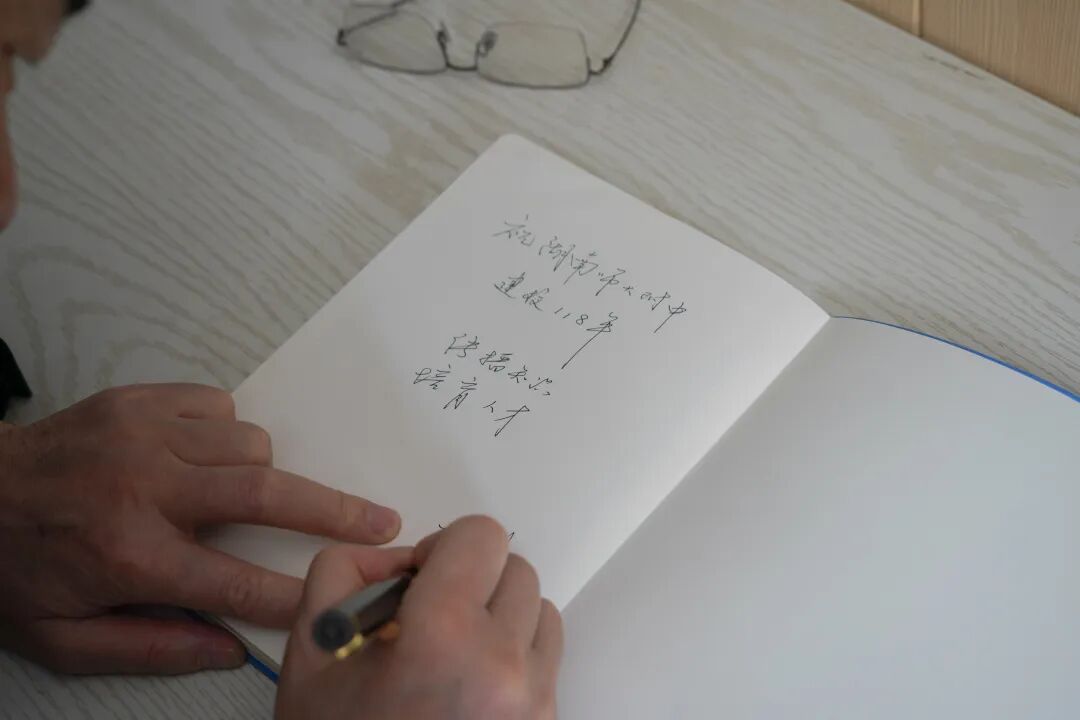 祝湖南师大附中
建校118年
传播知识
培育人才